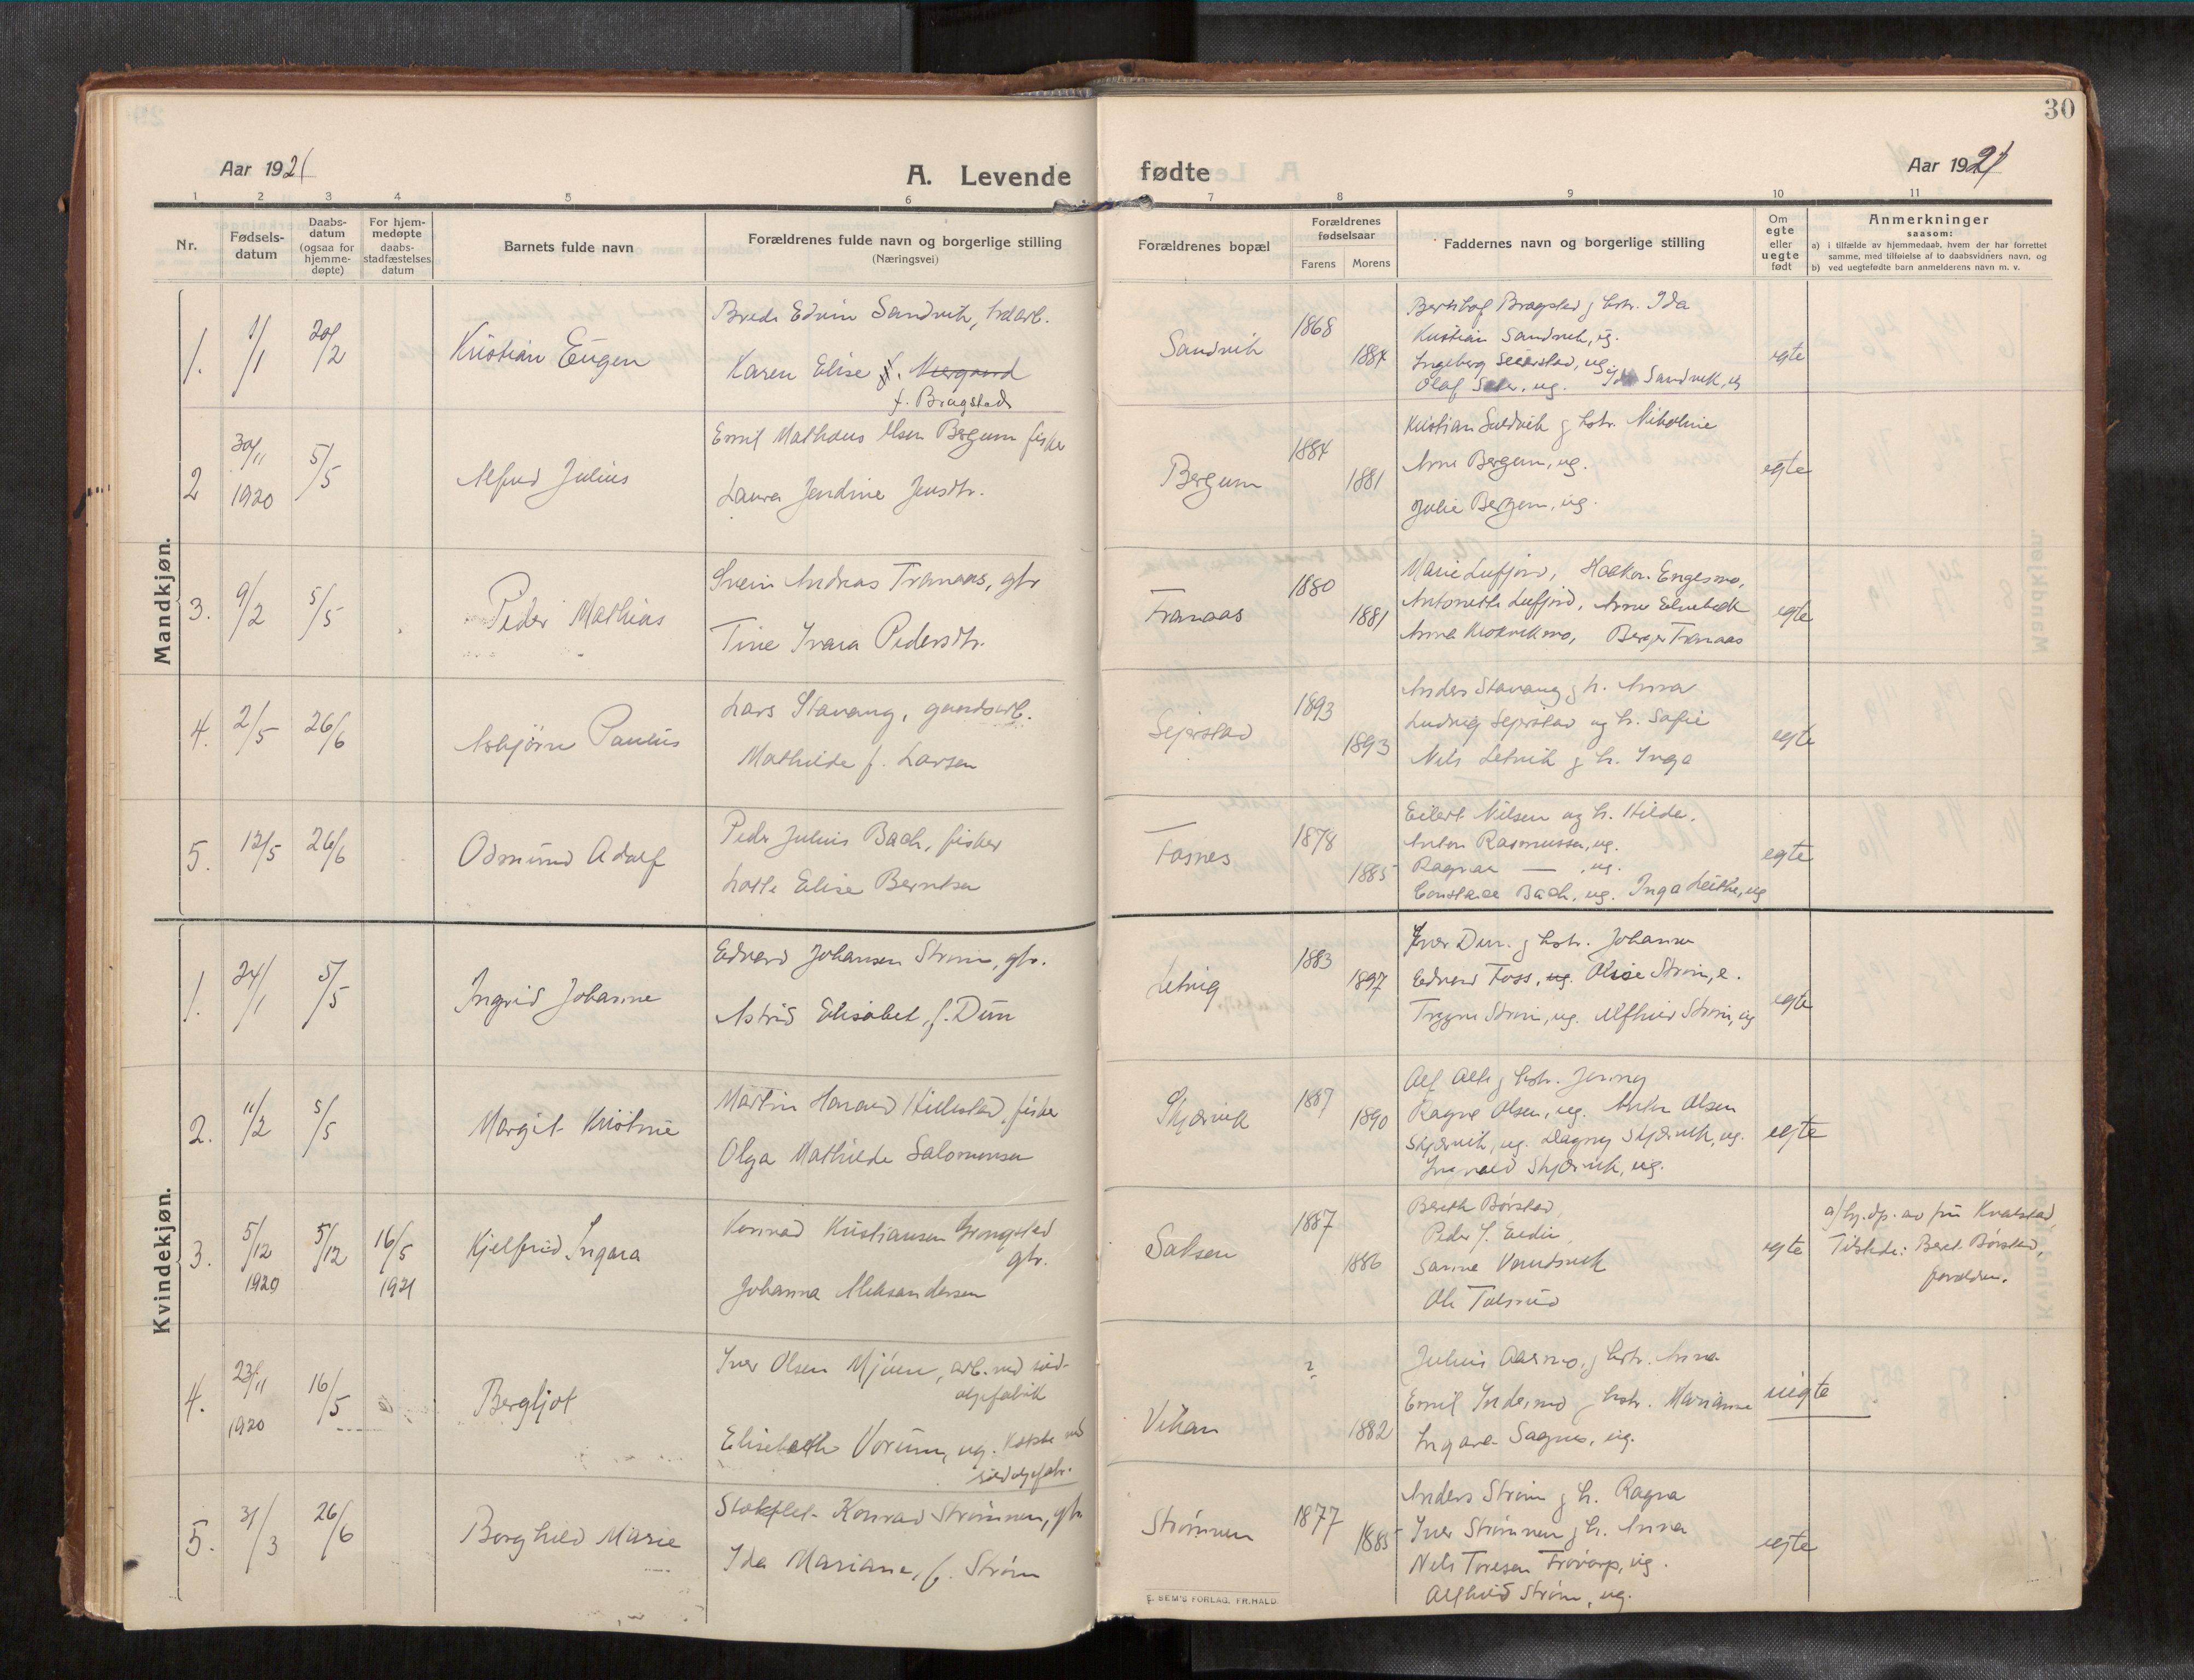 30
Aar 1921
A. Levende
fødte
Aar 1921
1 2 3 4 5 6 7 8 9 10 11
Nr.
Fødsels-
datum
Daabs-
datum
(ogsaa for
hjemme-
døpte)
For hjem-
medøpte
daabs-
stadfæstelses
datum
Barnets fulde navn
Forældrenes fulde navn og borgerlige stilling
(Næringsvei)
Forældrenes bopæl
Forældrenes
fødselsaar
Farens Morens
Faddernes navn og borgerlige stilling
Om
egte
eller
uegte
født
Anmerkninger
saasom:
a) i tilfælde av hjemmedaab, hvem der har forrettet
samme, med tilføielse af to daabsvidners navn, og
b) ved uegtefødte barn anmelderens navn m. v.
Mandkjøn.
1. 1/1 20/2 Kristian Eugen
Brede Edvin Sandvik,
Karen Elise
f. Bragstad
Sandvik 1868 1884
Bragstad g hstr. Ida
Kristian Sandvik, ug.
Ingeborg Seierstad, ug.
Olaf ug. Sandvik, ug
egte
2 30/11 1920 5/5 Alfred Julius
Emil Mathæus Olsen Bergum fisker
Laura Jendine Jensdtr.
Bergum 1884 1881
Kristian g hstr. Nikoline
Arne Bergum, ug.
Julie Bergum, ug.
egte
3. 9/2 5/5 Peder Mathias
Svein Andreas Tranaas, gbr
Tine Ivara Pedersdtr.
Tranaas 1880 1881
Marie Lufjord, Haakon Engesmo,
Antonette Lufjord, Arne
Anna Berger Tranaas
egte
4. 2/5 26/6 Asbjørn Paulus
Lars Stavang, gaardsarb.
Mathilde f. Larsen
Sejerstad 1893 1893
Anders Stavang g h. Anna
Ludvig Sejerstad og h. Sofie
Nils Letvik g h. Inga
egte
5. 12/5 26/6 Osmund Adolf
Peder Julius Bach, fisker
Lotte Elise Berntsen
Fosnes 1878 1885
Eilert Nilsen og h. Hilde.
Anton Rasmussen, ug.
Ragnar — , ug.
Constance Bach, ug. Inga ug
egte
Kvindekjøn.
1. 24/1 5/5 Ingrid Johanne
Edvard Johansen Strøm, gbr.
Astrid Elisabet, f. Dun
Letvig 1883 1897
Iver Dun. g hstr. Johanna
Edvard Foss, ug. Olise Strøm, e.
Trygve Strøm, ug. Alfhild Strøm, ug
egte
2. 11/2 5/5 Margit Kristine
Martin Harald fisker
Olga Mathilde Salomonsen
Skjærvik 1887 1890
Alf g hstr. Jenny
Ragna Olsen, ug. Olsen
Skjærvik, ug. Dagny Skjærvik, ug.
Ingvald Skjærvik, ug.
egte
3. 5/12 1920 5/12 16/5 1921 Kjelfrid Ingara
Konrad Kristiansen Grongstad
gbr.
Johanna Aleksandersen
Salsen 1887 1886
Bereth Børstad,
Peder J.
Sarine
Ole
egte
a/ hj.dp. av fru Kvalstad,
Tilstede: Beret Børstad,
forældre.
4. 23/11 1920 16/5 Bergljot
Iver Olsen Mjøen, arb. ved sild-
oljefabrik
Elisebeth Vorum, ug. Kokke ved
sildoljefabr.
Vikan ? 1882
Julius Aasmo, g hstr. Anna
Emil g hstr. Marianne
Ingara Sagnes, ug.
uegte
5. 31/3 26/6 Borghild Marie
Stokflet Konrad Strømmen, gbr
Ida Mariane, f. Strøm
Strømmen 1877 1885
Anders Strøm g h. Ragna
Iver Strømmen g h. Anna
Nels Toresen ug.
Alfhild Strøm, ug.
egte
E. SEM'S FORLAG, FR.HALD.